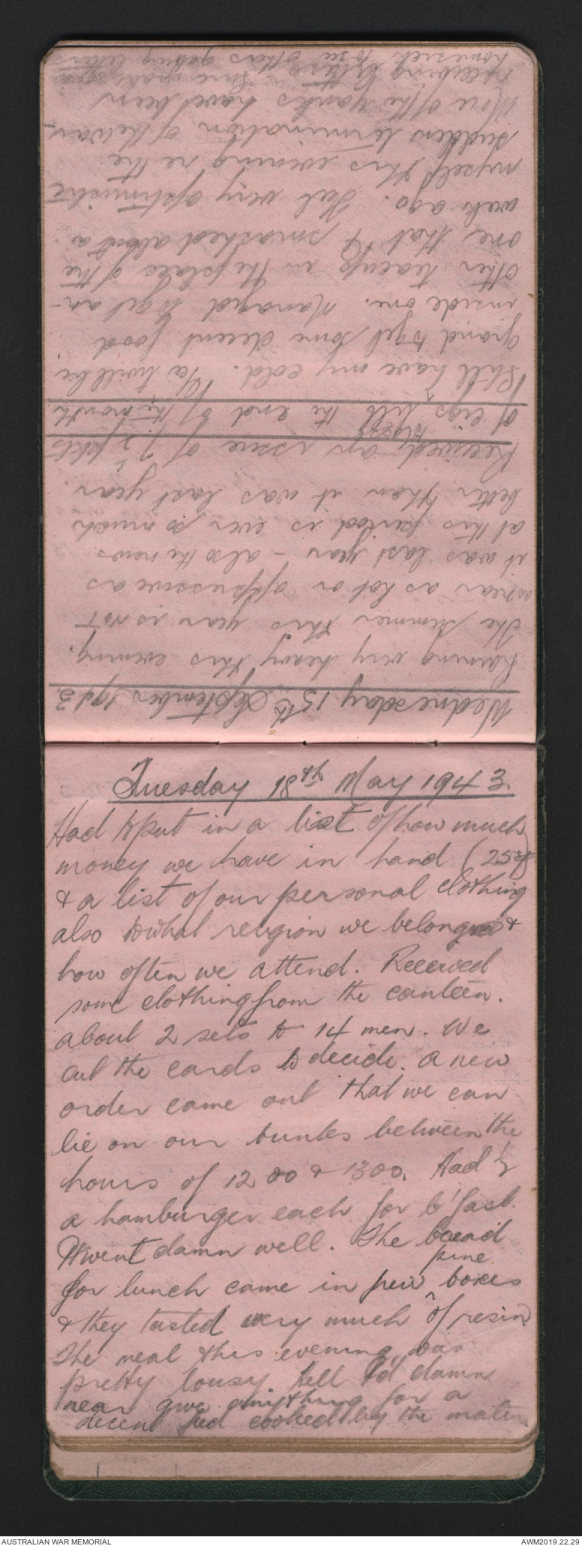 Wednesday 15th September 1943
Raining very heavy this evening.
The summer this year is not
near as hot or oppressive as
it was last year - also the news
at this period is ever so much
better than it was last year.
Received an issue of 7½ pkts
of cigs to last till the end of the month
Still have my cold. Tea will be
grand to get some decent food
inside one. Managed to get an-
other teacup in the place of the
one that I smashed about a
week ago. Feel very optimistic
myself this evening re the
sudden termination of the war.
More of the Yanks have been
receiving letters. Sure makes you
homesick to see others getting letters
Tuesday 18th May 1943.
Had to put in a list of how much
money we have in hand (25
& a list of our personal clothing
also to what religion we belong &
how often we attend. Received
some clothing from the canteen.
about 2 sets to 14 men. We
cut the cards to decide. A new
order came out that we can
lie on our bunks between the
hours of 1200 & 1300. Had ½
a hamburger each for b'fast.
It went damn well. The bread
for lunch came in new pine boxes
& they tasted very much of resin
The meal this evening was
pretty lousy hell I'd damn
near give anything for a
decent feed cooked by the mater
AUSTRALIAN WAR MEMORIAL
AWM2019.22.29